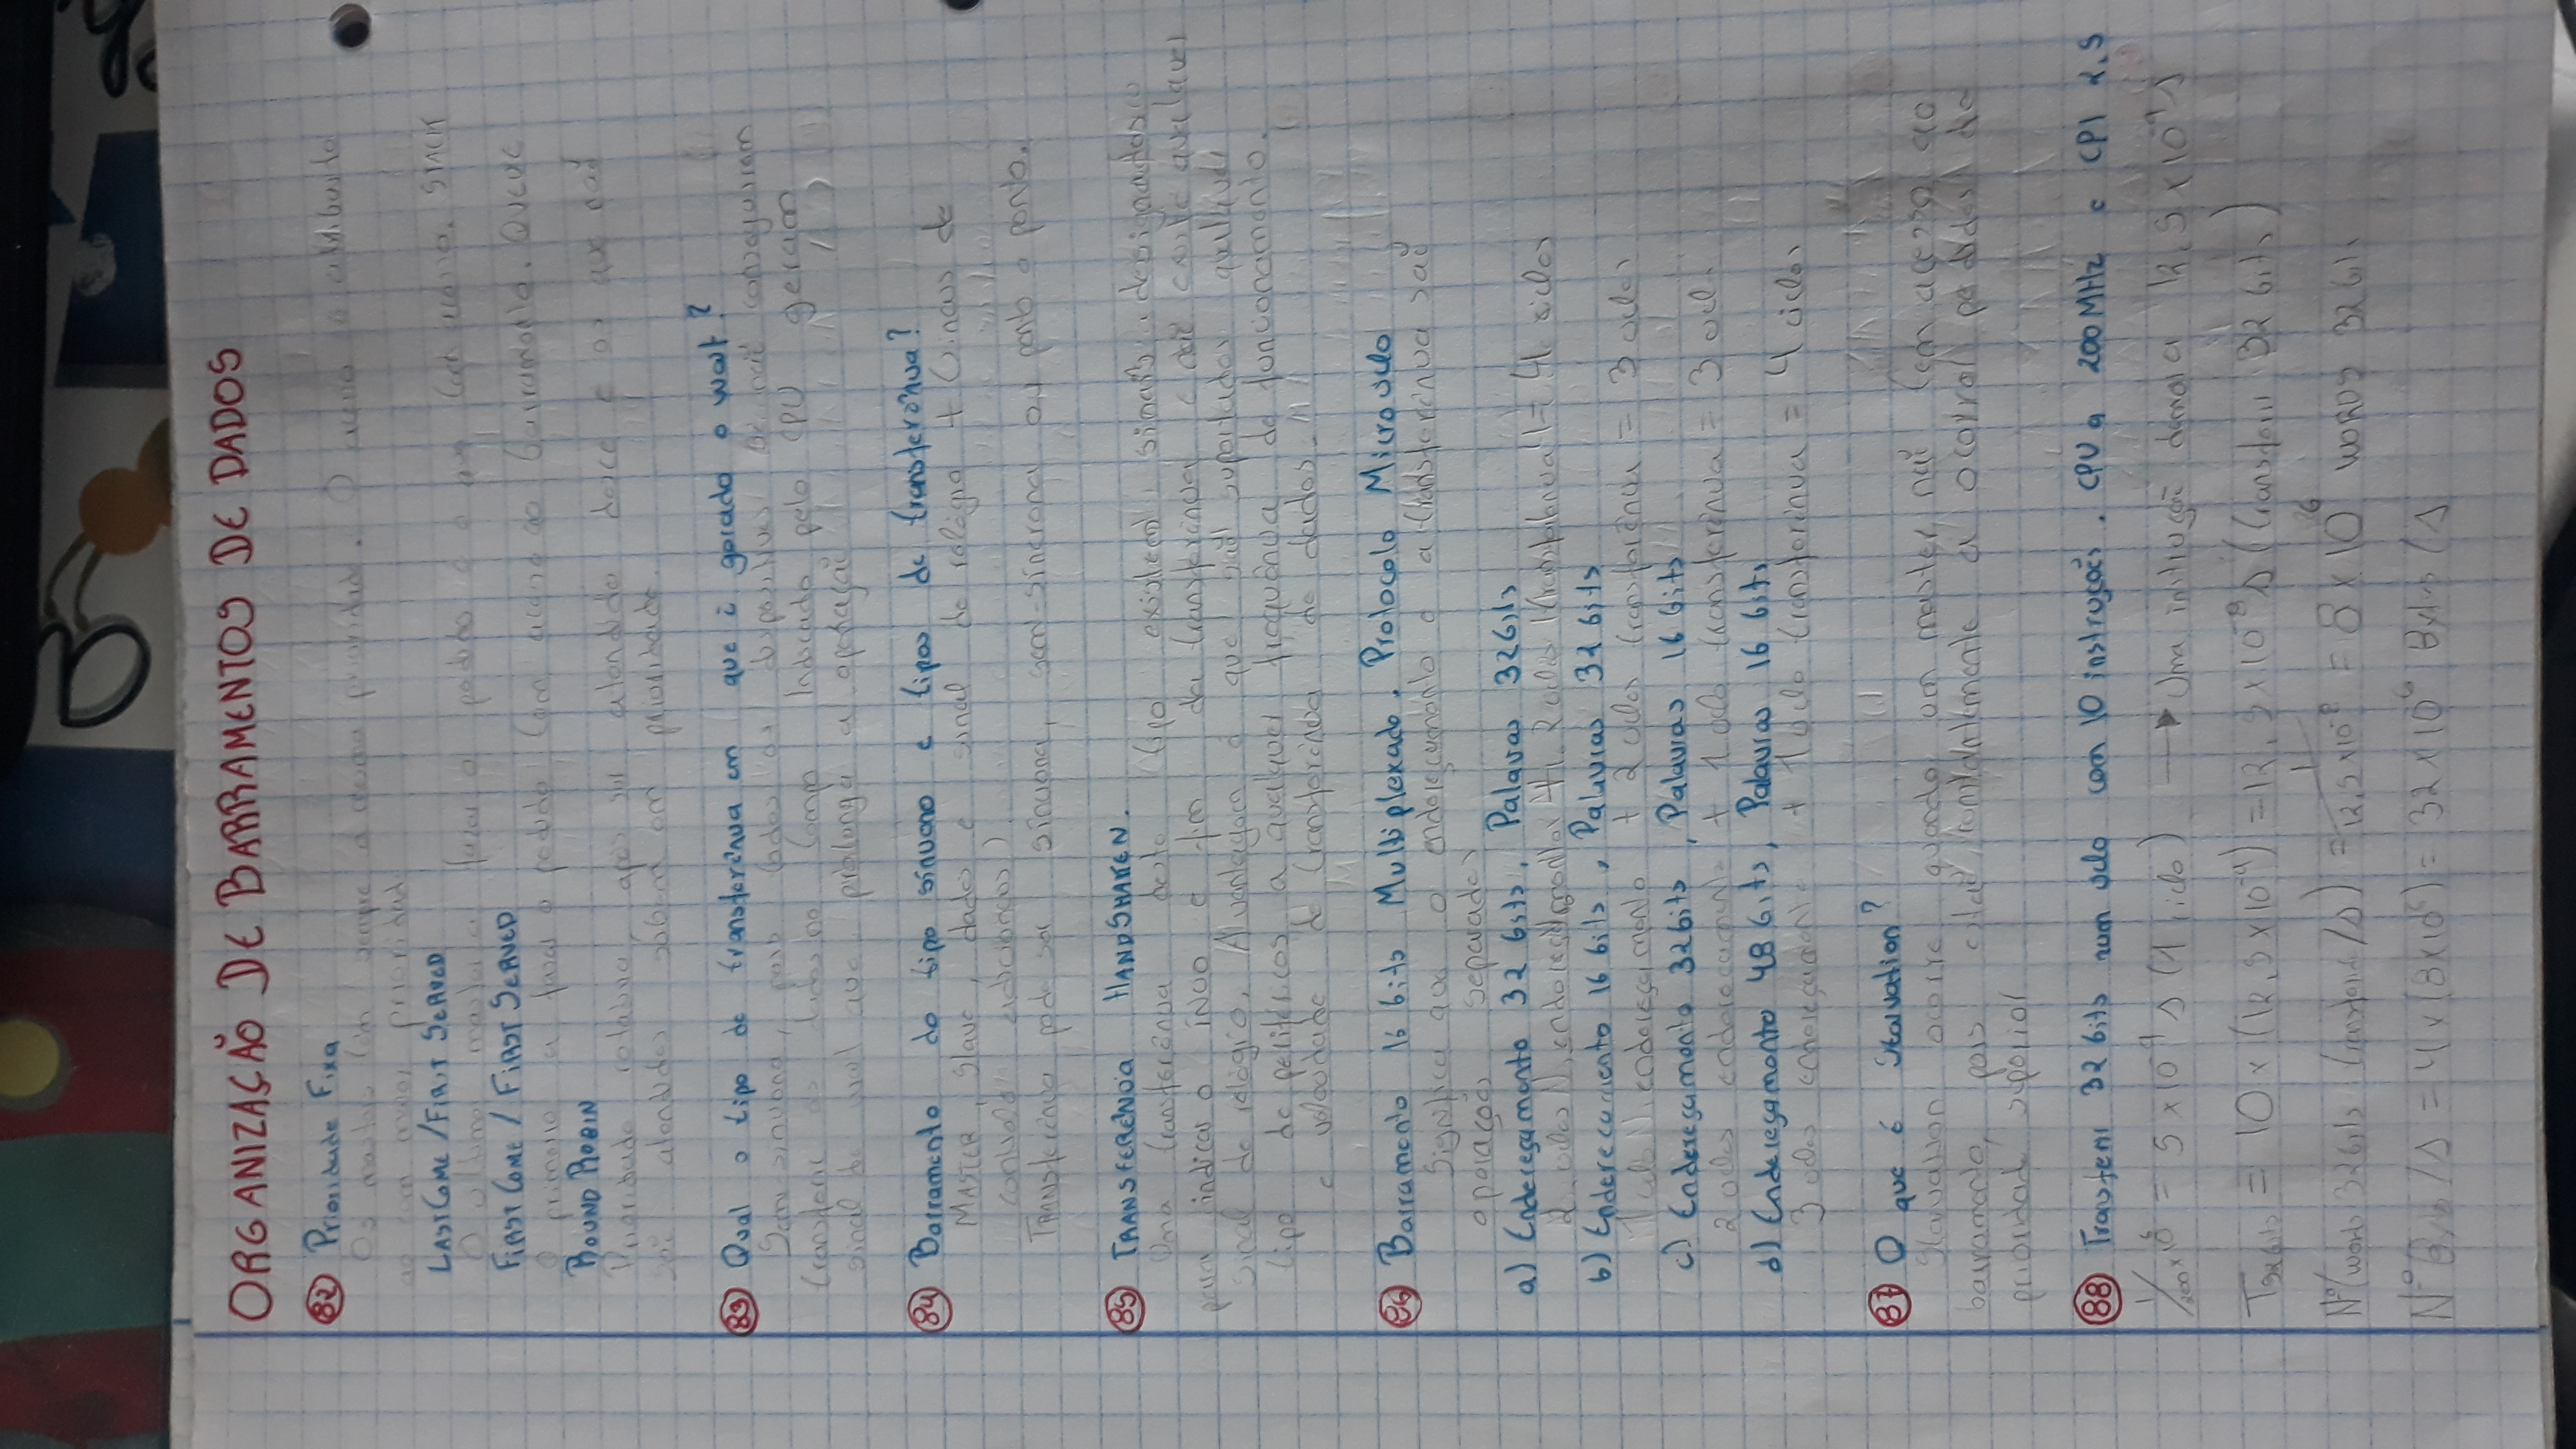 ORGANIZAÇÃO DE BARRAMENTOS DE DADOS
82 Prioridade Fixa
Os masters têm sempre a mesma prioridade. O acesso é atribuido
ao com maior prioridade
LAST COME / FIRST SERVED
O ultimo master a fazer o pedido é o que tem acesso. STACK
FIRST COME / FIRST SERVED
O primeiro a fazer o pedido tem acesso ao barramento. QUEUE
ROUND ROBIN
Prioridade rotativa, após ser atendido desce e os que não
são atendidos sobem em prioridade.
83 Qual o tipo de transferência em que é gerado o wait?
Semi sincrona, todos os dispositivos que não conseguiram
transferir os dados no tempo indicado pelo CPU geram
sinal de wait que prolonga a operação
84 Barramento do tipo síncrono e tipos de transferência?
MASTER, Slave, dados e sinal de relógio + (linhas de
controlo adicionais)
Transferência pode ser sincrona, semi-síncrona ou ponto a ponto.
85 TRANSFERÊNCIA HANDSHAKEN.
Numa transferência deste tipo existem sinais designados
para indicar o início e fim da transferência e não existe qualquer
sinal de relógio. A vantagem é que são suportados qualquer
tipo de periféricos a qualquer frequência de funcionamento.
e velocidade de transferência de dados.
86 Barramento 16 bits Multiplexado, Protocolo Microciclo
Significa que o endereçamento e a transferência são
operações separadas
a) Endereçamento 32 bits, Palavras 32 bits
2 ciclos endereçamento + 2 ciclos transferência = 4 ciclos
b) Enderecamento 16 bits, Palavras 32 bits
1 ciclo endereçamento + 2 ciclos transferência = 3 ciclos
c) Endereçamento 32 bits, Palavras 16 bits
2 ciclos enderecamento + 1 ciclo transferência = 3 cicl
d) Endereçamento 48 bits, Palavras 16 bits
3 ciclos endereçamento + 1 ciclo transferência = 4 ciclos
87 O que é Starvation?
Starvation ocorre quando um master não tem acesso ao
barramento, pois estão constantemente a ocorrer pedidos de
prioridade superior
88 Transferir 32 bits num ciclo com 10 instruções. CPU a 200 MHz e CPI 2.5
1/200×10⁶ = 5×10⁻⁹ s (1 ciclo) → Uma instrução demora 12,5×10⁻⁹ s
T32bits = 10 × (12,5×10⁻⁹) = 12,5×10⁻⁸ s (transferir 32 bits)
Nº(words 32 bits transferir/s) = 1/12,5×10⁻⁸ = 8×10⁶ WORDS 32 bits
Nº Bytes/s = 4×(8×10⁶) = 32×10⁶ Bytes/s